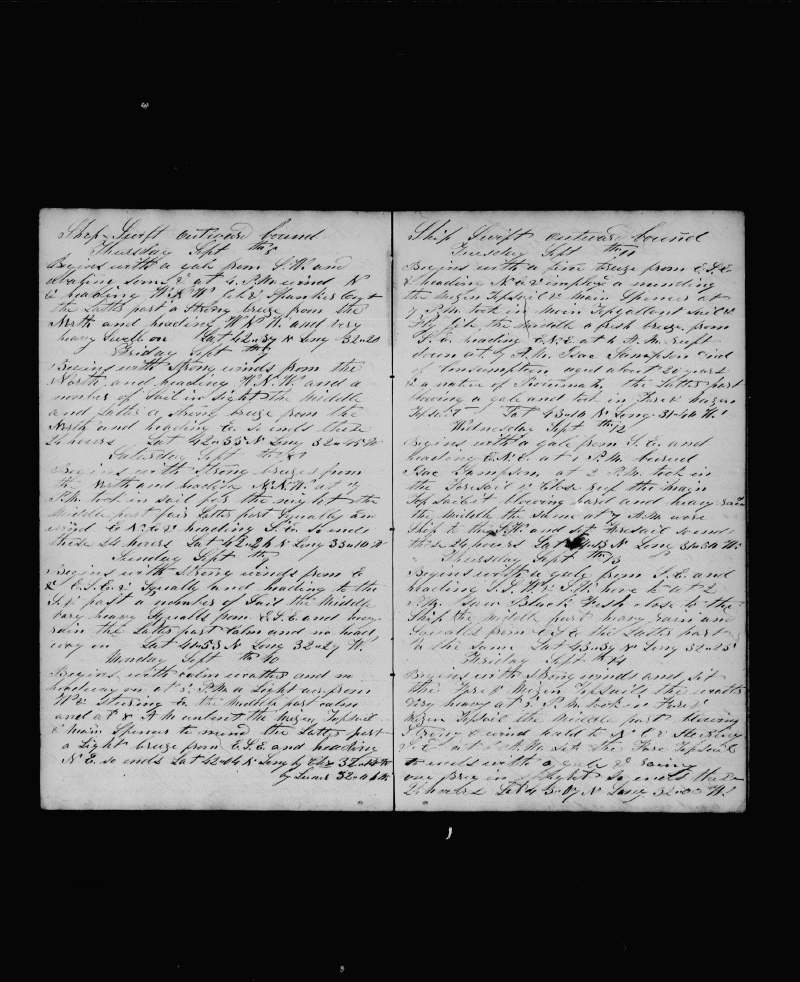 Ship Swift outward bound
Thursday Sept th 6
Begins with a gale from S.W. and
at 4 P.M. wind N
& heading W.N.W.
the Latter part a Strong breeze from the
North and heading W.N.W. and very
heavy Swell on Lat 42..37 N Long 32..20
Friday Sept th 7
Begins with Strong winds from the
North and heading W.N.W. and a
number of Sail in Sight the Middle
and Latter a Strong breeze from the
North and heading E. So ends these
24 hours Lat 42..35 N Long 32..45 W
Saturday Sept th 8
Begins with Strong breezes from
the North and heading W.N.W. at 7
P.M. took in Sail for the night the
Middle part fair Latter part Squally and
wind E. heading S.E. So ends
these 24 hours Lat 42..26 N Long 33..10 W
Sunday Sept th 9
Begins with Strong winds from E
& E.S.E. Squally and heading to the
a number of Sail the Middle
very heavy Squalls from E.S.E and heavy
rain the Latter part calm and no head
way on Lat 41..53 N Long 32..27 W.
Monday Sept th 10
Begins with calm weather and no
headway on at 5 P.M a Light air from
W Steering E. the Middle part calm
and at 8 A M unbent the Mizen Topsail
& main Spencer to mend the Latter part
a Light breeze from E.S.E and heading
N.E. so ends Lat 42..44 N Long by 32 W
by Lunar 32
Ship Swift outward bound
Tuesday Sept th 11
Begins with a fine breeze from E.S.E
& heading N.E. imploy'd mending
the Mizen Topsail & Main Spencer at
7 P.M. took in Main Topgallant Sail &
Fly Jib the Middle a fresh breeze from
S.E. heading E.N.E. at 4 A.M.
down at A.M. Isac Sampson died
of Consumption aged about 20 years
& a native of the Latter part
blowing a gale and took in Fore & Mizen
Topsail Lat 43..10 N Long 31..40 W.
Wednesday Sept th 12
Begins with a gale from S.E. and
heading E.N.E. at 1 P.M. buried
Isac Sampson at 2 P.M. took in
the Foresail & Close reef the main
Topsail it blowing hard and heavy rain
the Middle the Same at 7 A.M wore
Ship to the S.W. and Set Foresail So ends
these 24 hours Lat N Long W.
Thursday Sept th 13
Begins with a gale from S.E. and
heading S.S.W. & S.W. at 2
P.M. Saw Black Fish close to the
Ship the Middle part heavy rain and
Squalls from the Latter part
the Same Lat 43..39 N Long 32..25
Friday Sept th 14
Begins with Strong winds and Set
the Fore & Mizen Topsails the weather
very heavy at 5 P.M. took in Fore &
Mizen Topsail the Middle part blowing
Strong & wind hauld to N.E. & Steering
S.E. at A.M. Set the Fore Topsail
& ends with a gale &
one Brig in Sight So ends these
24 hours Lat N Long 32 W.